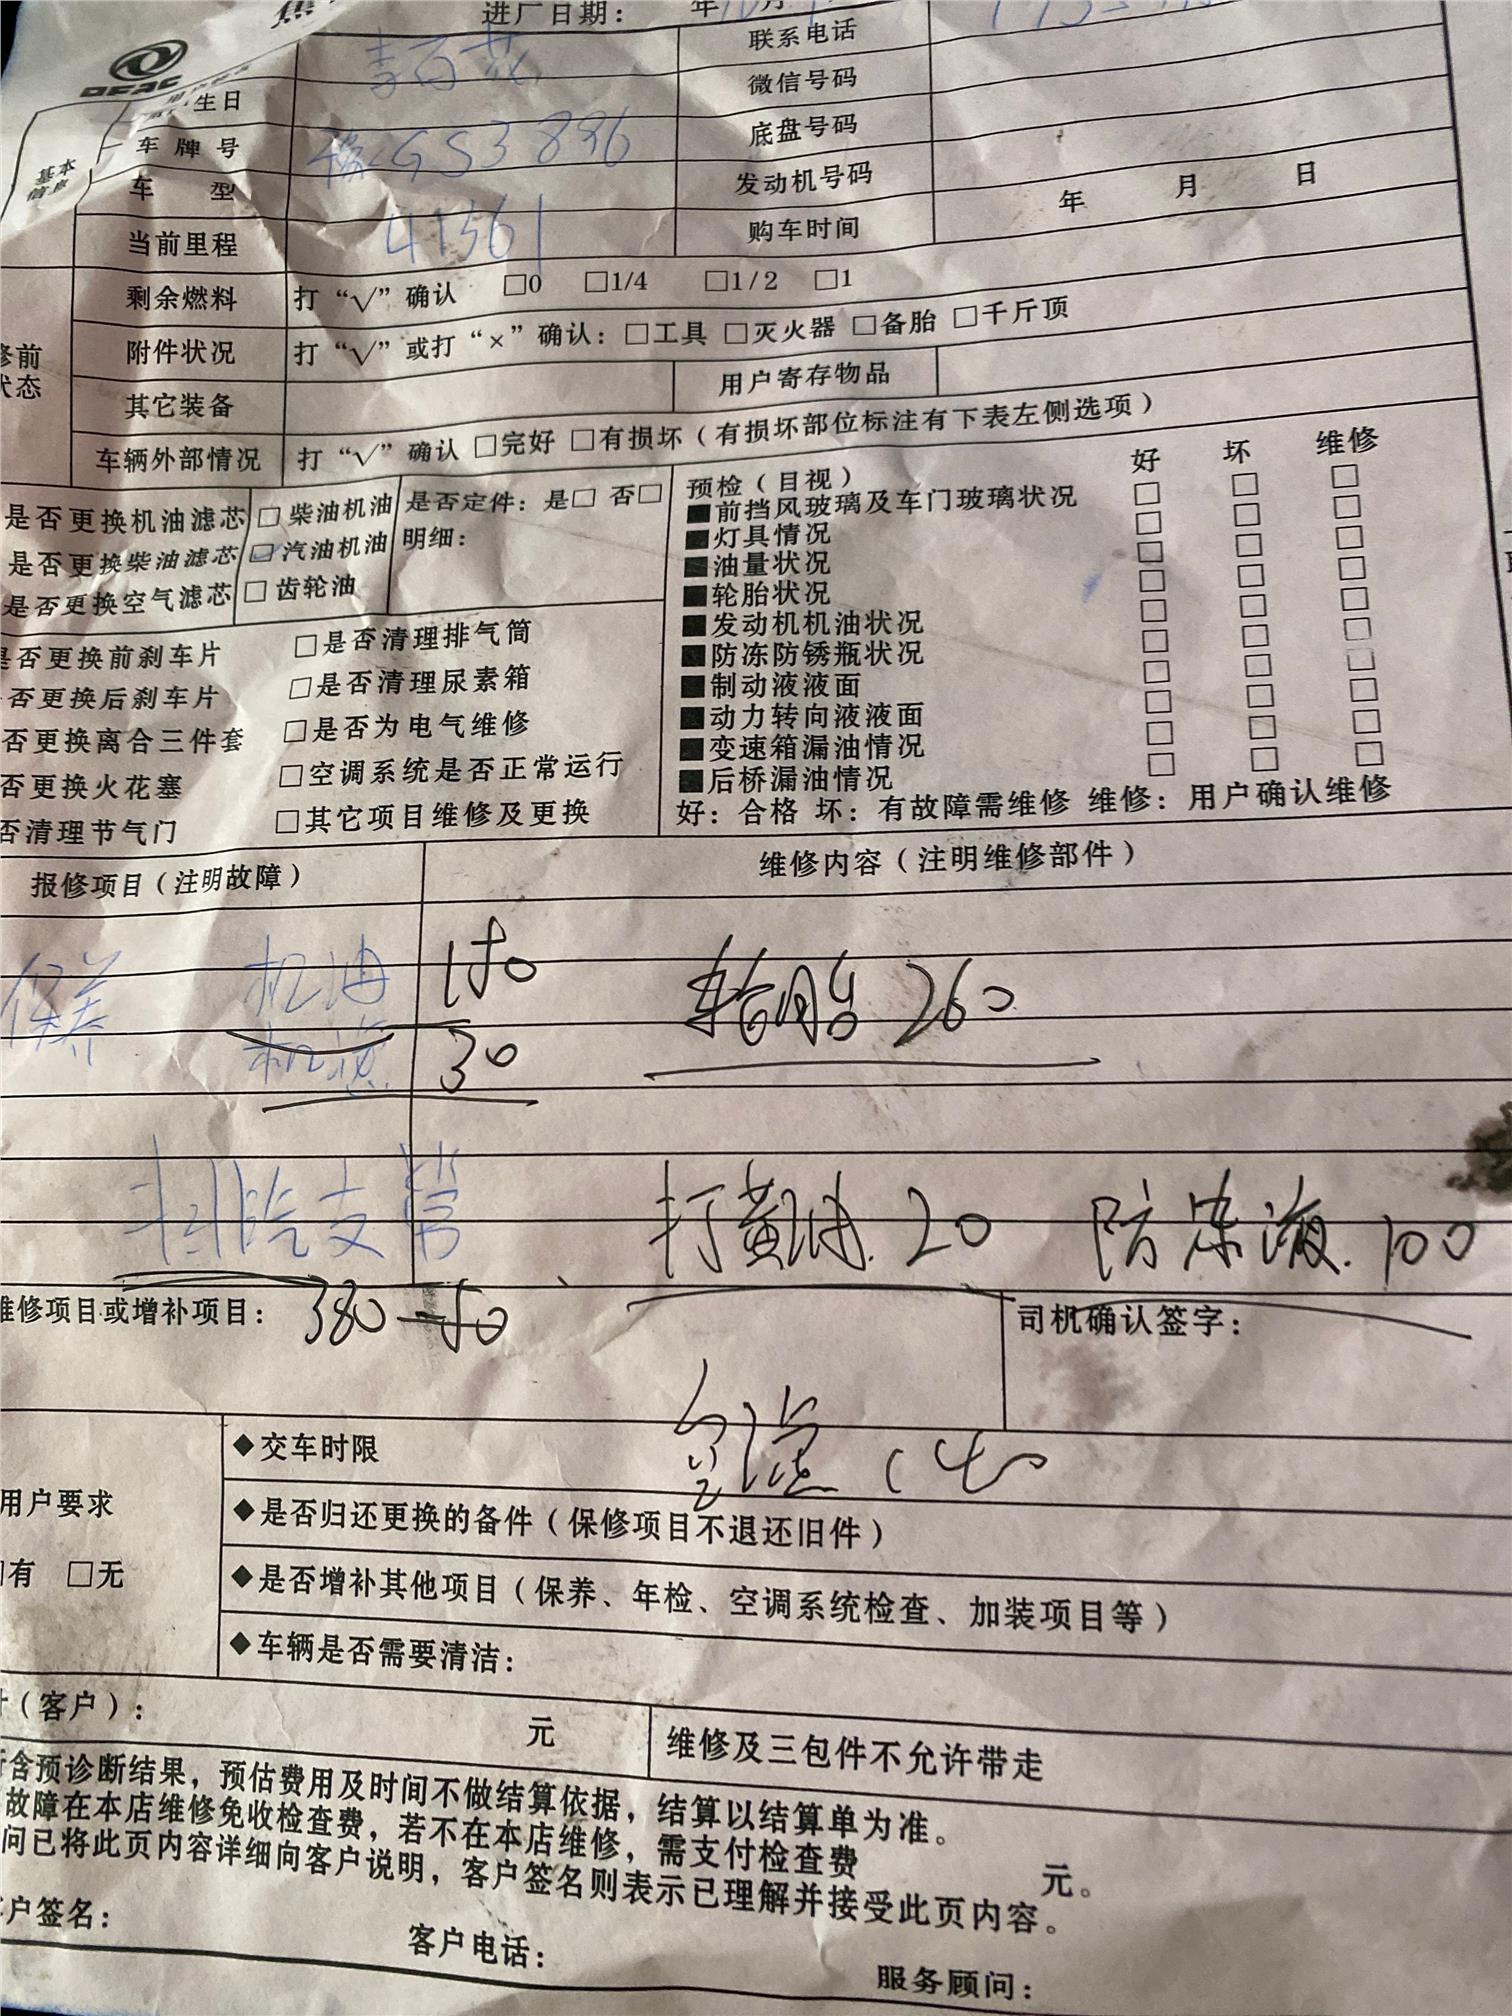 进厂日期： 年 月
联系电话
李百花
DFAC
生日
微信号码
车牌号 豫GS3896 底盘号码
基本信息
车 型 发动机号码
当前里程 41561 购车时间 年 月 日
剩余燃料 打“√”确认 □0 □1/4 □1/2 □1
修前状态
附件状况 打“√”或打“×”确认：□工具 □灭火器 □备胎 □千斤顶
其它装备 用户寄存物品
车辆外部情况 打“√”确认 □完好 □有损坏（有损坏部位标注有下表左侧选项）
是否更换机油滤芯 □柴油机油 是否定件：是□ 否□
是否更换柴油滤芯 □汽油机油 明细：
是否更换空气滤芯 □齿轮油
预检（目视） 好 坏 维修
■前挡风玻璃及车门玻璃状况 □ □ □
■灯具情况 □ □ □
■油量状况 □ □ □
■轮胎状况 □ □ □
■发动机机油状况 □ □ □
■防冻防锈瓶状况 □ □ □
■制动液液面 □ □ □
■动力转向液液面 □ □ □
■变速箱漏油情况 □ □ □
■后桥漏油情况 □ □ □
好：合格 坏：有故障需维修 维修：用户确认维修
是否更换前刹车片 □是否清理排气筒
否更换后刹车片 □是否清理尿素箱
否更换离合三件套 □是否为电气维修
否更换火花塞 □空调系统是否正常运行
否清理节气门 □其它项目维修及更换
报修项目（注明故障） 维修内容（注明维修部件）
保养 机油 150 轮胎 260
机滤 30
排气支管 打黄油 20 防冻液 100
维修项目或增补项目： 380-50 司机确认签字：
空滤
用户要求
□有 □无
◆交车时限
◆是否归还更换的备件（保修项目不退还旧件）
◆是否增补其他项目（保养、年检、空调系统检查、加装项目等）
◆车辆是否需要清洁：
计（客户）： 元 维修及三包件不允许带走
含预诊断结果，预估费用及时间不做结算依据，结算以结算单为准。
故障在本店维修免收检查费，若不在本店维修，需支付检查费 元。
问已将此页内容详细向客户说明，客户签名则表示已理解并接受此页内容。
客户签名： 客户电话： 服务顾问：